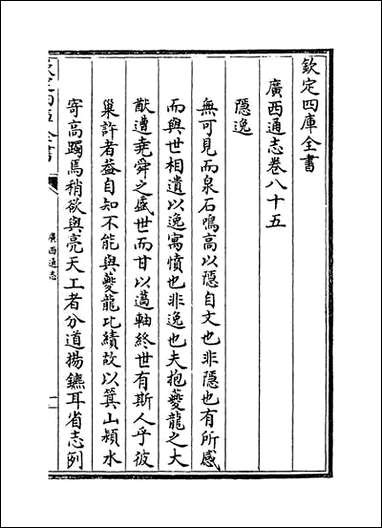 欽定四庫全書
廣西通志卷八十五
隱逸
無可見而泉石鳴高以隱自文也非隱也有所感
而與世相遺以逸寓憤也非逸也夫抱夔龍之大
猷遭堯舜之盛世而甘以薖軸終世有斯人乎彼
巢許者葢自知不能與夔龍比績故以箕山潁水
寄高躅焉稍欲與亮天工者分道揚鑣耳省志例
欽定四庫全書
廣西通志
一